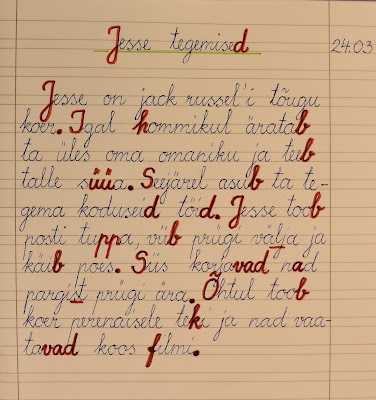 Jesse tegemised
24.03
Jesse on jack russel'i tõugu
koer. Igal hommikul äratab
ta üles oma omaniku ja teeb
talle süüa. Seejärel asub ta te-
gema koduseid töid. Jesse toob
posti tuppa, viib prügi välja ja
käib poes. Siis korjavad nad
pargist prügi ära. Õhtul toob
koer perenaisele teki ja nad vaa-
tavad koos filmi.